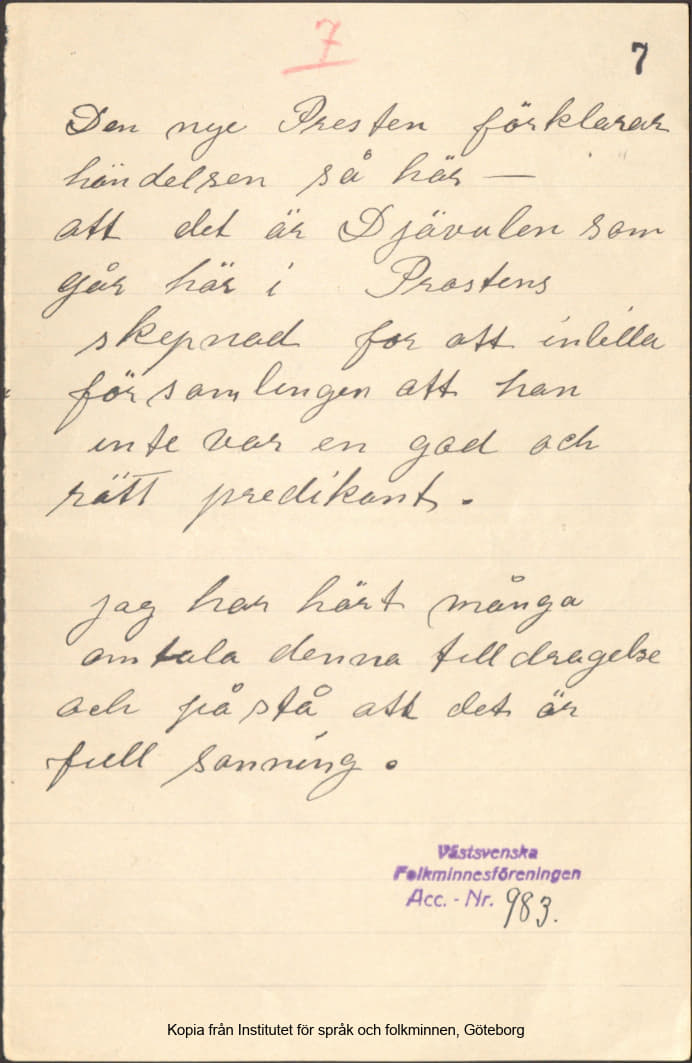 7
7
Den nye Presten förklarar
händelsen så här —
att det är Djävulen som
går här i Prostens
skepnad for att inbilla
församlingen att han
inte var en god och
rätt predikant.
jag har hört många
omtala denna tilldragelse
och påstå att det är
full sanning.
Västsvenska
Folkminnesföreningen
Acc. - Nr. 983.
Kopia från Institutet för språk och folkminnen, Göteborg